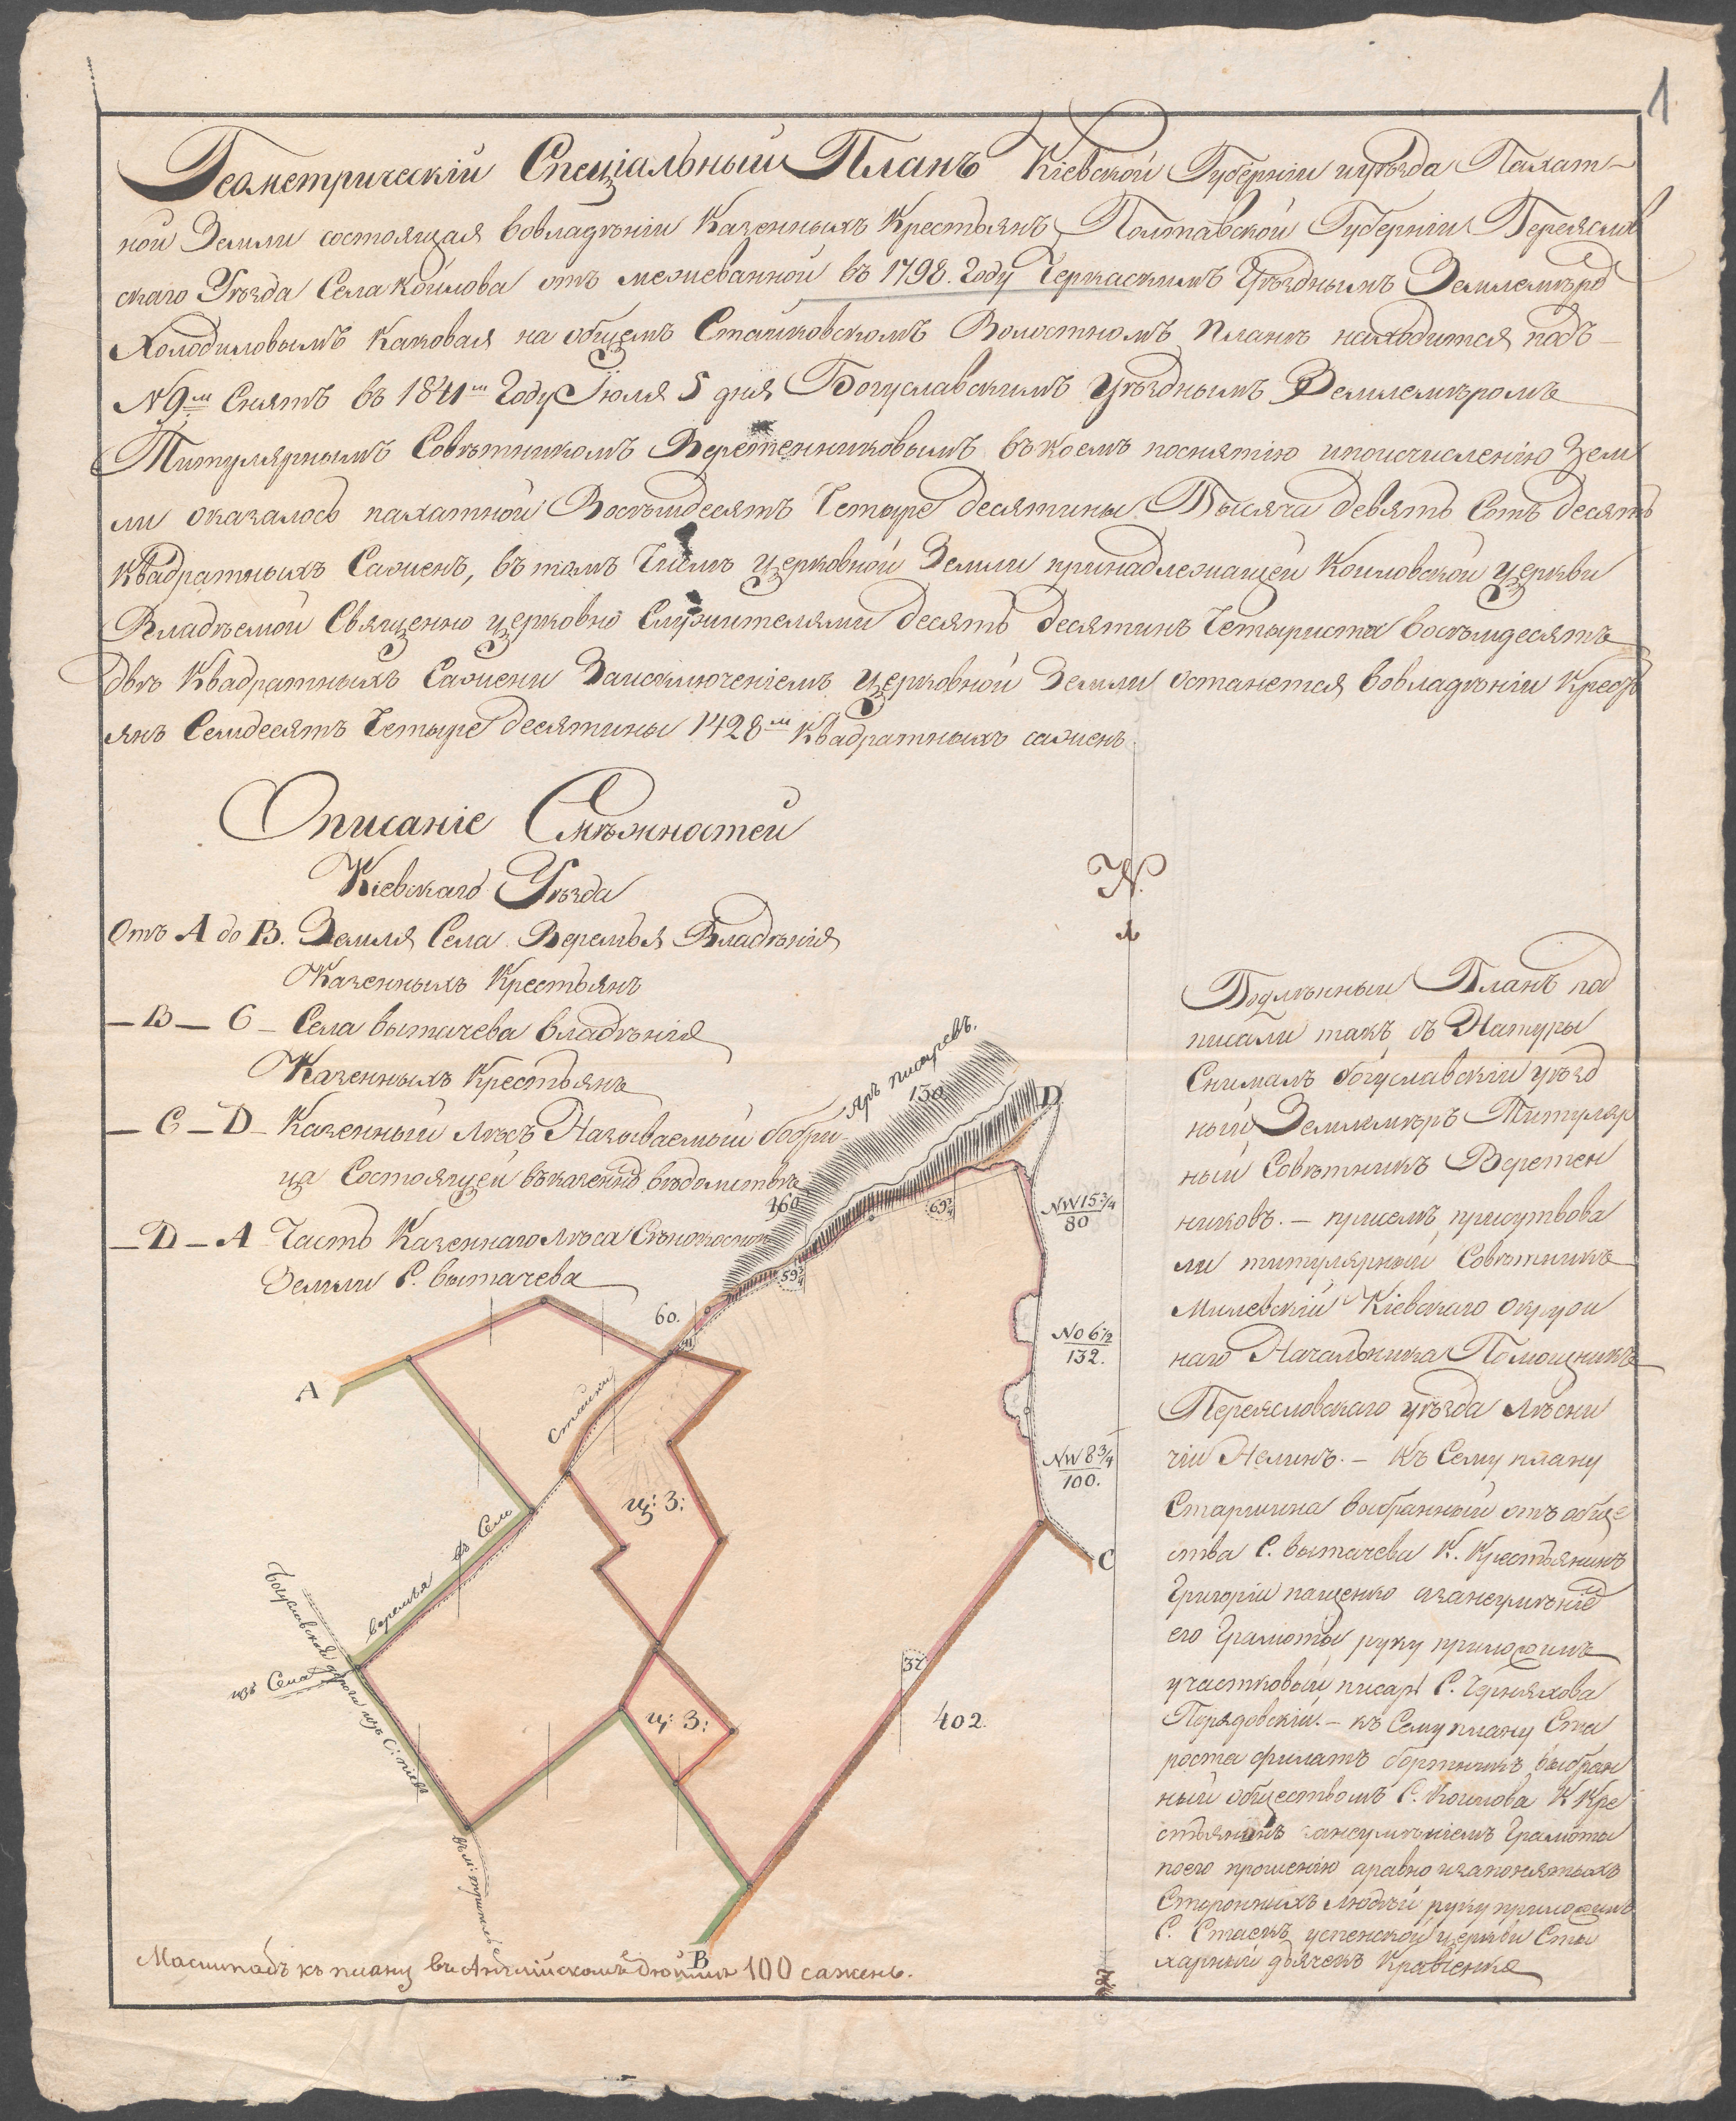 1
Геометрическій Спеціальный Планъ Кіевской Губерніи иуѣзда Пахат-
ной Земли состоящая вовладѣніи Казенныхъ Крестьянъ Полтавской Губерніи Переяслав
скаго Уѣзда Села Коилова отъ межеванной въ 1798. Году Черкаскимъ Уѣзднымъ Землемѣро
Холодиловымъ Каковая на общемъ Стайковскомъ Волостномъ Планѣ находится подъ-
№ 9м Снятъ въ 1841м Году Іюля 5 дня Богуславскимъ Уѣзднымъ Землемѣромъ
Титулярнымъ Совѣтникомъ Веретенниковымъ въ коемъ поснятію ипоисчисленію Зем
ли оказалось пахатной Восѣмдесятъ Четыре десятины Тысяча девять Сотъ десять
Квадратныхъ Саженъ, въ томъ Числѣ церковной Земли принадлежащей Коиловской церкви
Владѣемой Священно церковно Служителями десять десятинъ Четыриста восѣмдесятъ
двѣ Квадратныхъ Сажени Заисключеніемъ церковной Земли останется вовладѣніи Кресть
янъ Семдесятъ Четыре десятины 1428м Квадратныхъ саженъ
Описаніе Смѣжностей
Кіевскаго Уѣзда
Отъ А до В. Земля Села Веремья Владѣнія
Казенныхъ Крестьянъ
— В — С — Села вытачева владѣнія
Казенныхъ Крестьянъ
— С — D — Казенный лѣсъ Называемый бобри-
ца Состоящей въказенно вѣдомствѣ
— D — А Часть Казеннаго лѣса
Земли С. вытачева
N.
Яръ писаревъ.
130
160
D
69¾
59¾
60.
NW 15¾
80
NO 6½
132.
NW 8¾
100.
A
C
B
стайки
въ Село
веремья
изъ Села
Богуславская дорога изъ
ц: З:
ц: З:
37
402
Подлѣнный Планъ по
писали такъ съ Натуры
Снималъ богуславскій уѣзд
ный Землемѣръ Титуляр
ный Совѣтникъ Веретен
никовъ. — присемъ присутвова
ли титулярный Совѣтникъ
Милевскій Кіевскаго окруж
наго Начальника Помощникъ
Переясловскаго уѣзда лѣсни
чій Нелинъ. — Къ Сему плану
Старшина выбранный отъ обще
ства С. вытачева К. Крестьянинъ
Григорій пащенко
его Грамоты руку приложилъ
участковый писарь С. Черняхова
Порядовскій. — къ Сему плану Ста
роста филатъ бортникъ выбран
ный обществомъ С. Коилова К Кре
стьянинъ Грамоты
поего прошенію
Стороннихъ людѣй руку приложилъ
С. Стаекъ успенской церкви Сти
харный дьячекъ Кравченко
Масштабъ къ плану въ Англійскомъ дюймѣ 100 сажень.